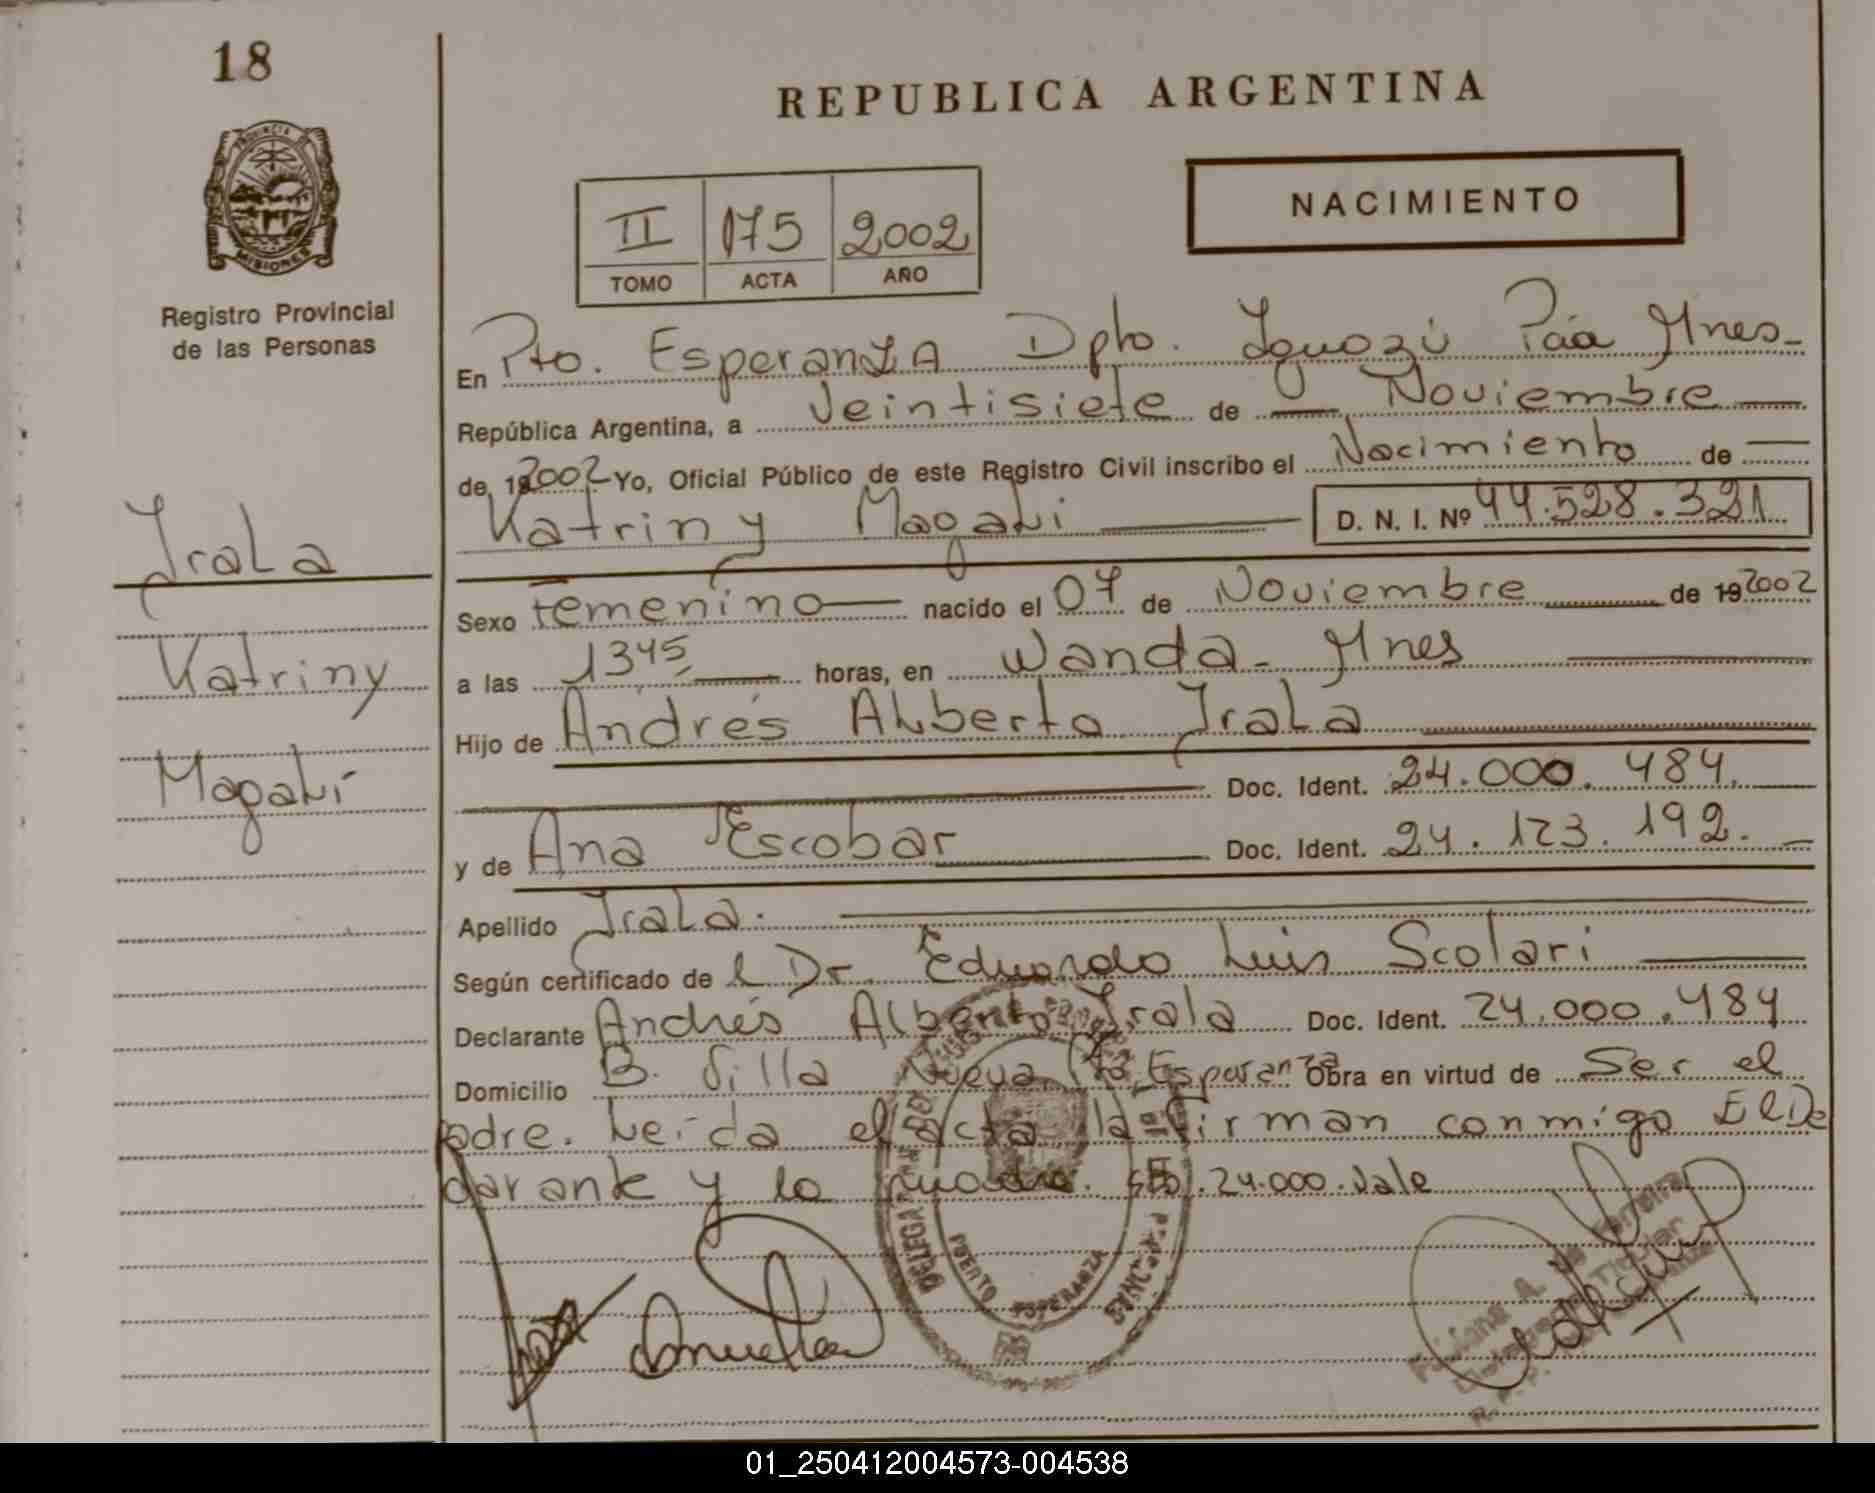 18
REPUBLICA ARGENTINA
PROVINCIA DE
MISIONES
Registro Provincial
de las Personas
II 175 2002
TOMO ACTA AÑO
NACIMIENTO
En Pto. Esperanza Dpto. Iguazú Pcia Mnes-
República Argentina, a Veintisiete de Noviembre
de 2002 Yo, Oficial Público de este Registro Civil inscribo el Nacimiento de
Katriny Magali D. N. I. Nº 44.528.321
Irala
Katriny
Magalí
Sexo femenino nacido el 07 de Noviembre de 192002
a las 1345 horas, en Wanda - Mnes
Hijo de Andrés Alberto Irala
Doc. Ident. 24.000.484.
y de Ana Escobar Doc. Ident. 24.123.192.
Apellido Irala.
Según certificado del Dr. Eduardo Luis Scolari
Declarante Andrés Alberto Irala Doc. Ident. 24.000.484
Domicilio B. Villa Nueva Pto Esperanza Obra en virtud de Ser el
padre. Leída el acta la firman conmigo El De
clarante y la madre. 24.000. Vale
PUERTO ESPERANZA
01_250412004573-004538